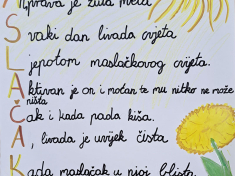 prava je žuta meta
Svaki dan livada cvjeta
Ljepotom maslačkovog cvijeta.
Aktivan je on i moćan te mu nitko ne može
ništa
Čak i kada pada kiša.
A, livada je uvijek čista
Kada maslačak u njoj blista.